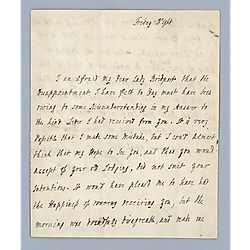 Friday Night
I am afraid my Dear Lady Bridport that the
Disappointment I have felt to Day must have been
owing to some Misunderstanding in my Answer to
the kind Letter I had received from you. It is very
possible that I made some mistake, but I can't admit
think that my Hope to see you, and that you would
accept of your old Lodging, did not suit your
Intentions. It would have pleased me to have had
the Happiness of receiving you, but the
morning was dreadfully disagreable, and made me